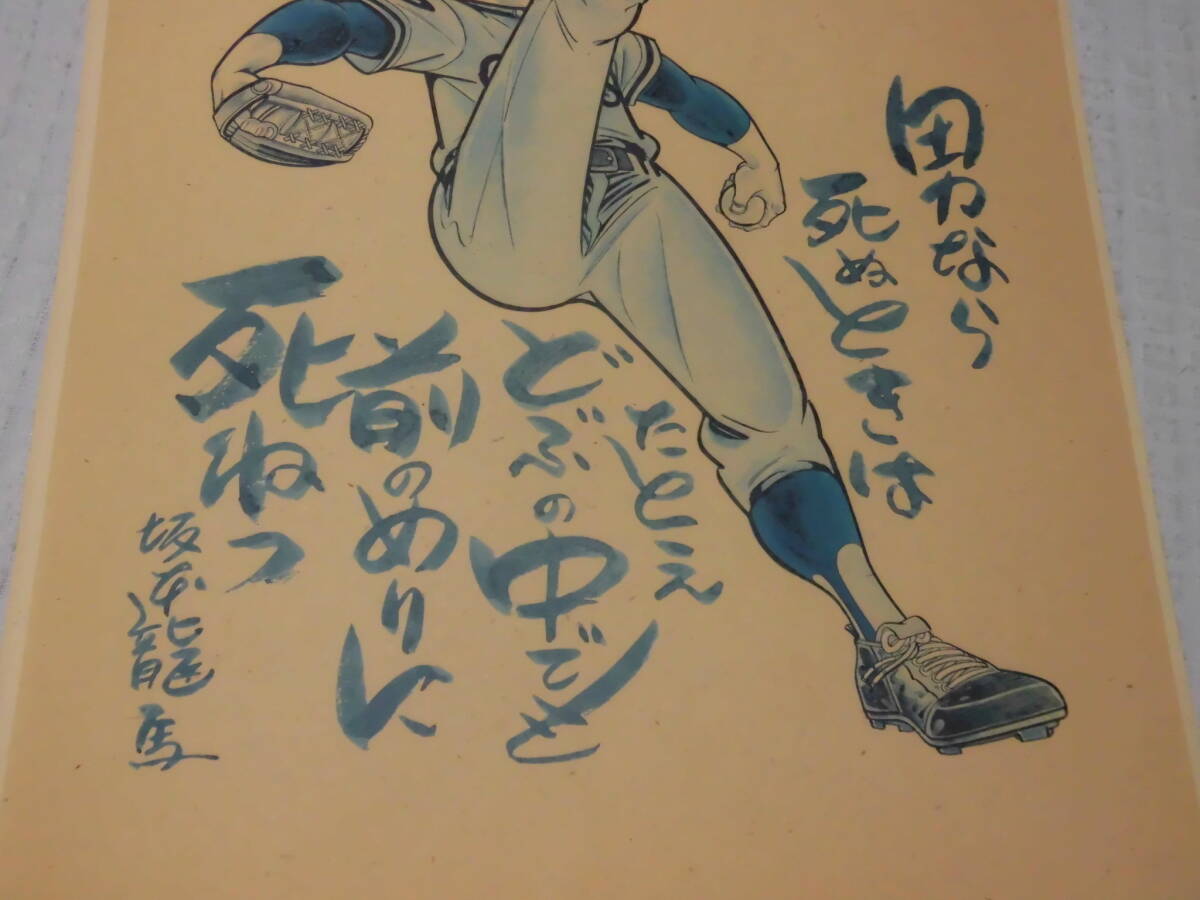 男なら
死ぬときは
たとえ
どぶの中でも
前のめりに
死ねっ
坂本龍馬